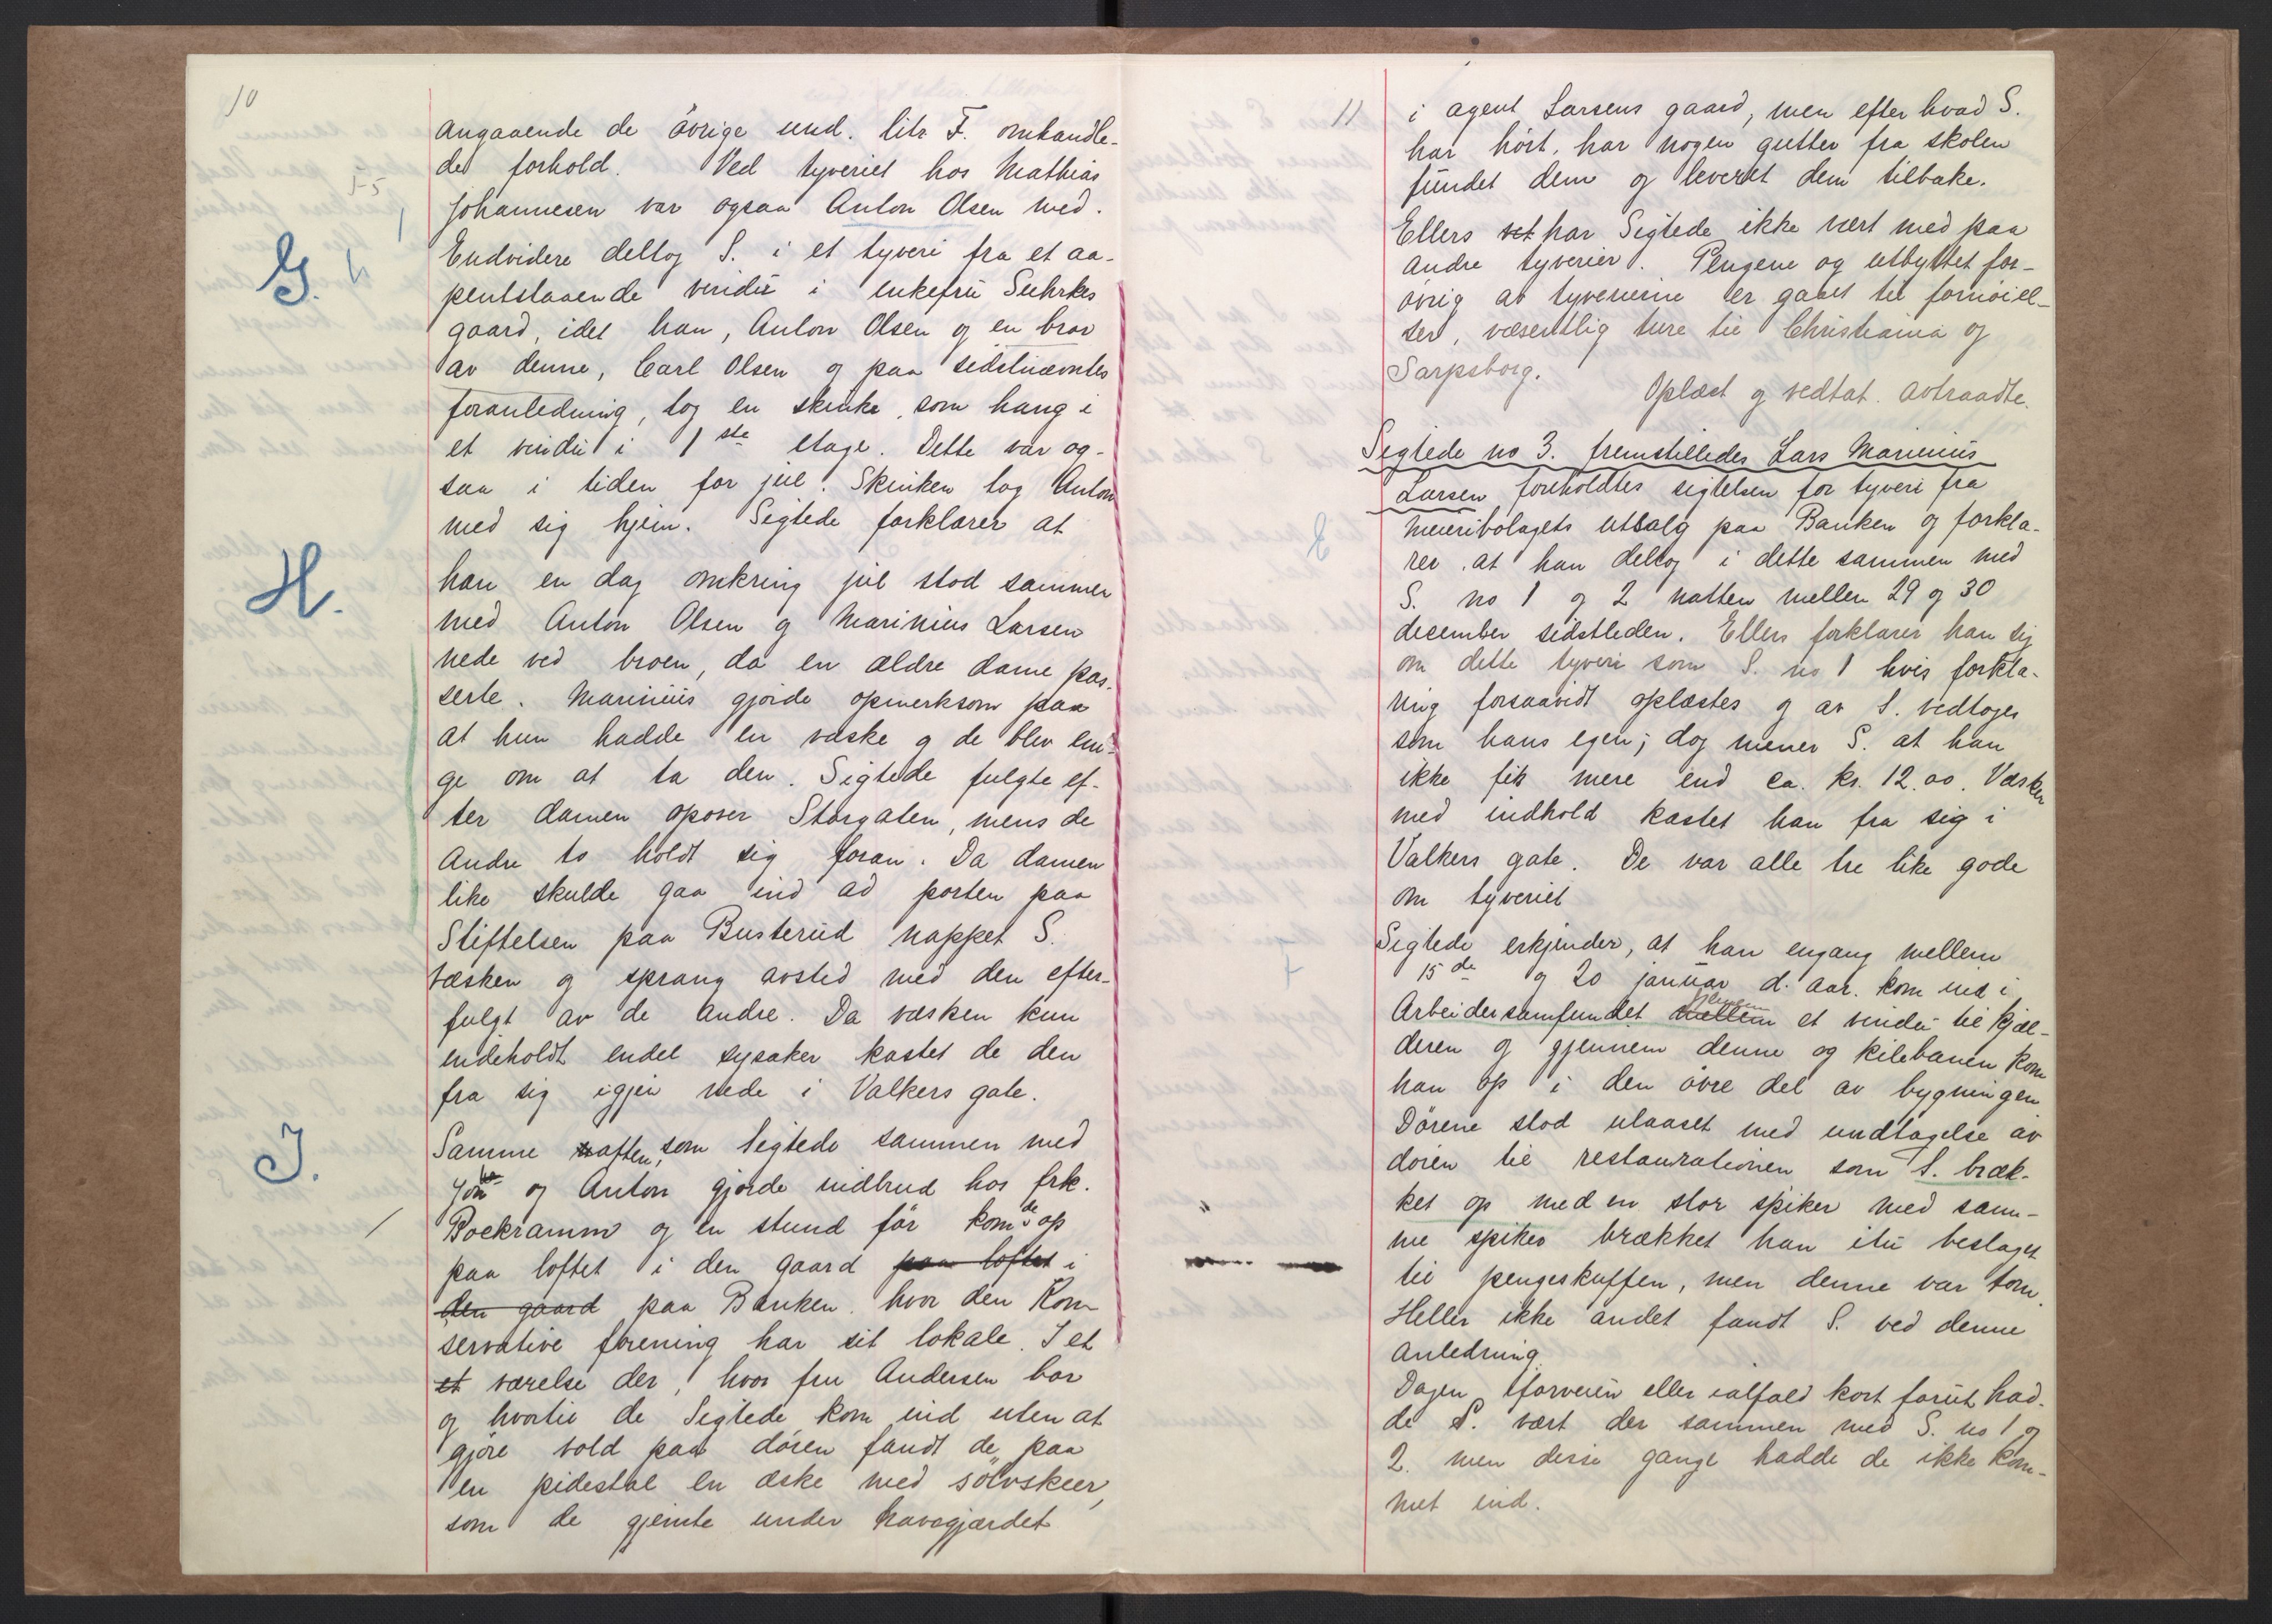 10
angaaende de övrige und. litr F. omhandle-
de forhold. Ved tyveriet hos Mathias
Johannesen var ogsaa Anton Olsen med.
G.
Endvidere deltog S. i et tyveri fra et aa-
pentstaaende vindu i enkefru Suhrkes
gaard, idet han, Anton Olsen og en bror
av denne, Carl Olsen og paa sidstnævntes
foranledning, tog en skinke, som hang i
et vindu i 1ste etage. Dette var og-
saa i tiden før jul. Skinken tog Anton
med sig hjem. Sigtede forklarer at
H.
han en dag omkring jul stod sammen
med Anton Olsen og Marinius Larsen
nede ved broen, da en ældre dame pas-
serte. Marinius gjorde opmerksom paa
at hun hadde en væske og de blev eni-
ge om at ta den. Sigtede fulgte ef-
ter damen opover Storgaten, mens de
andre to holdt sig foran. Da damen
like skulde gaa ind ad porten paa
Stiftelsen paa Busterud nappet S.
væsken og sprang avsted med den efter-
fulgt av de andre. Da væsken kun
indeholdt endel sysaker kastet de den
fra sig igjen nede i Valkers gate.
J.
Samme aften, som Sigtede sammen med
og Anton gjorde indbrud hos frk.
Bockramm og en stund før kom de op
paa loftet i den gaard paa loftet i
den gaard paa Banken hvor den Kon-
servative forening har sit lokale. I et
et værelse der, hvor fru Andersen bor
og hvortil de Sigtede kom ind uten at
gjøre vold paa døren fandt de paa
en pidestal en æske med sölvskeer,
som de gjemte under havegjærdet
11
i agent Larsens gaard, men efter hvad S.
har hört, har nogen gutter fra skolen
fundet dem og leveret dem tilbake.
Ellers har Sigtede ikke vært med paa
andre tyverier. Pengene og utbyttet for-
övrig av tyverierne er gaaet til fornöiel-
ser, væsentlig ture til Christiania og
Sarpsborg.
Oplæst og vedtat. Avtraadte.
Sigtede no 3. fremstilledes Lars Marinius
Larsen foreholdtes sigtelsen for tyveri fra
meieribolagets utsalg paa Banken og forkla-
rer at han deltog i dette sammen med
S. no 1 og 2 natten mellem 29 og 30
december sidstleden. Ellers forklarer han sig
om dette tyveri som S. no 1 hvis forkla-
ring forsaavidt oplæstes og av S. vedtoges
som hans egen; dog mener S. at han
ikke fik mere end ca. kr. 12.00. Væsken
med indhold kastet han fra sig i
Valkers gate. De var alle tre like gode
om tyveriet
Sigtede erkjender, at han engang mellem
15de og 20 januar d. aar. kom ind i
Arbeidersamfundet mellem et vindu til kjæl-
deren og gjennem denne og kilebanen kom
han op i den övre del av bygningen
Dörene stod ulaaset med undtagelse av
dören til restaurationen som S. bræk-
ket op med en stor spiker med sam-
me spiker brækket han itu beslaget
til pengeskuffen, men denne var tom.
Heller ikke andet fandt S. ved denne
anledning.
Dagen iforveien eller ialfald kort forut had-
de S. vært der sammen med S. no 1 og
2. men disse gange hadde de ikke kom-
met ind.